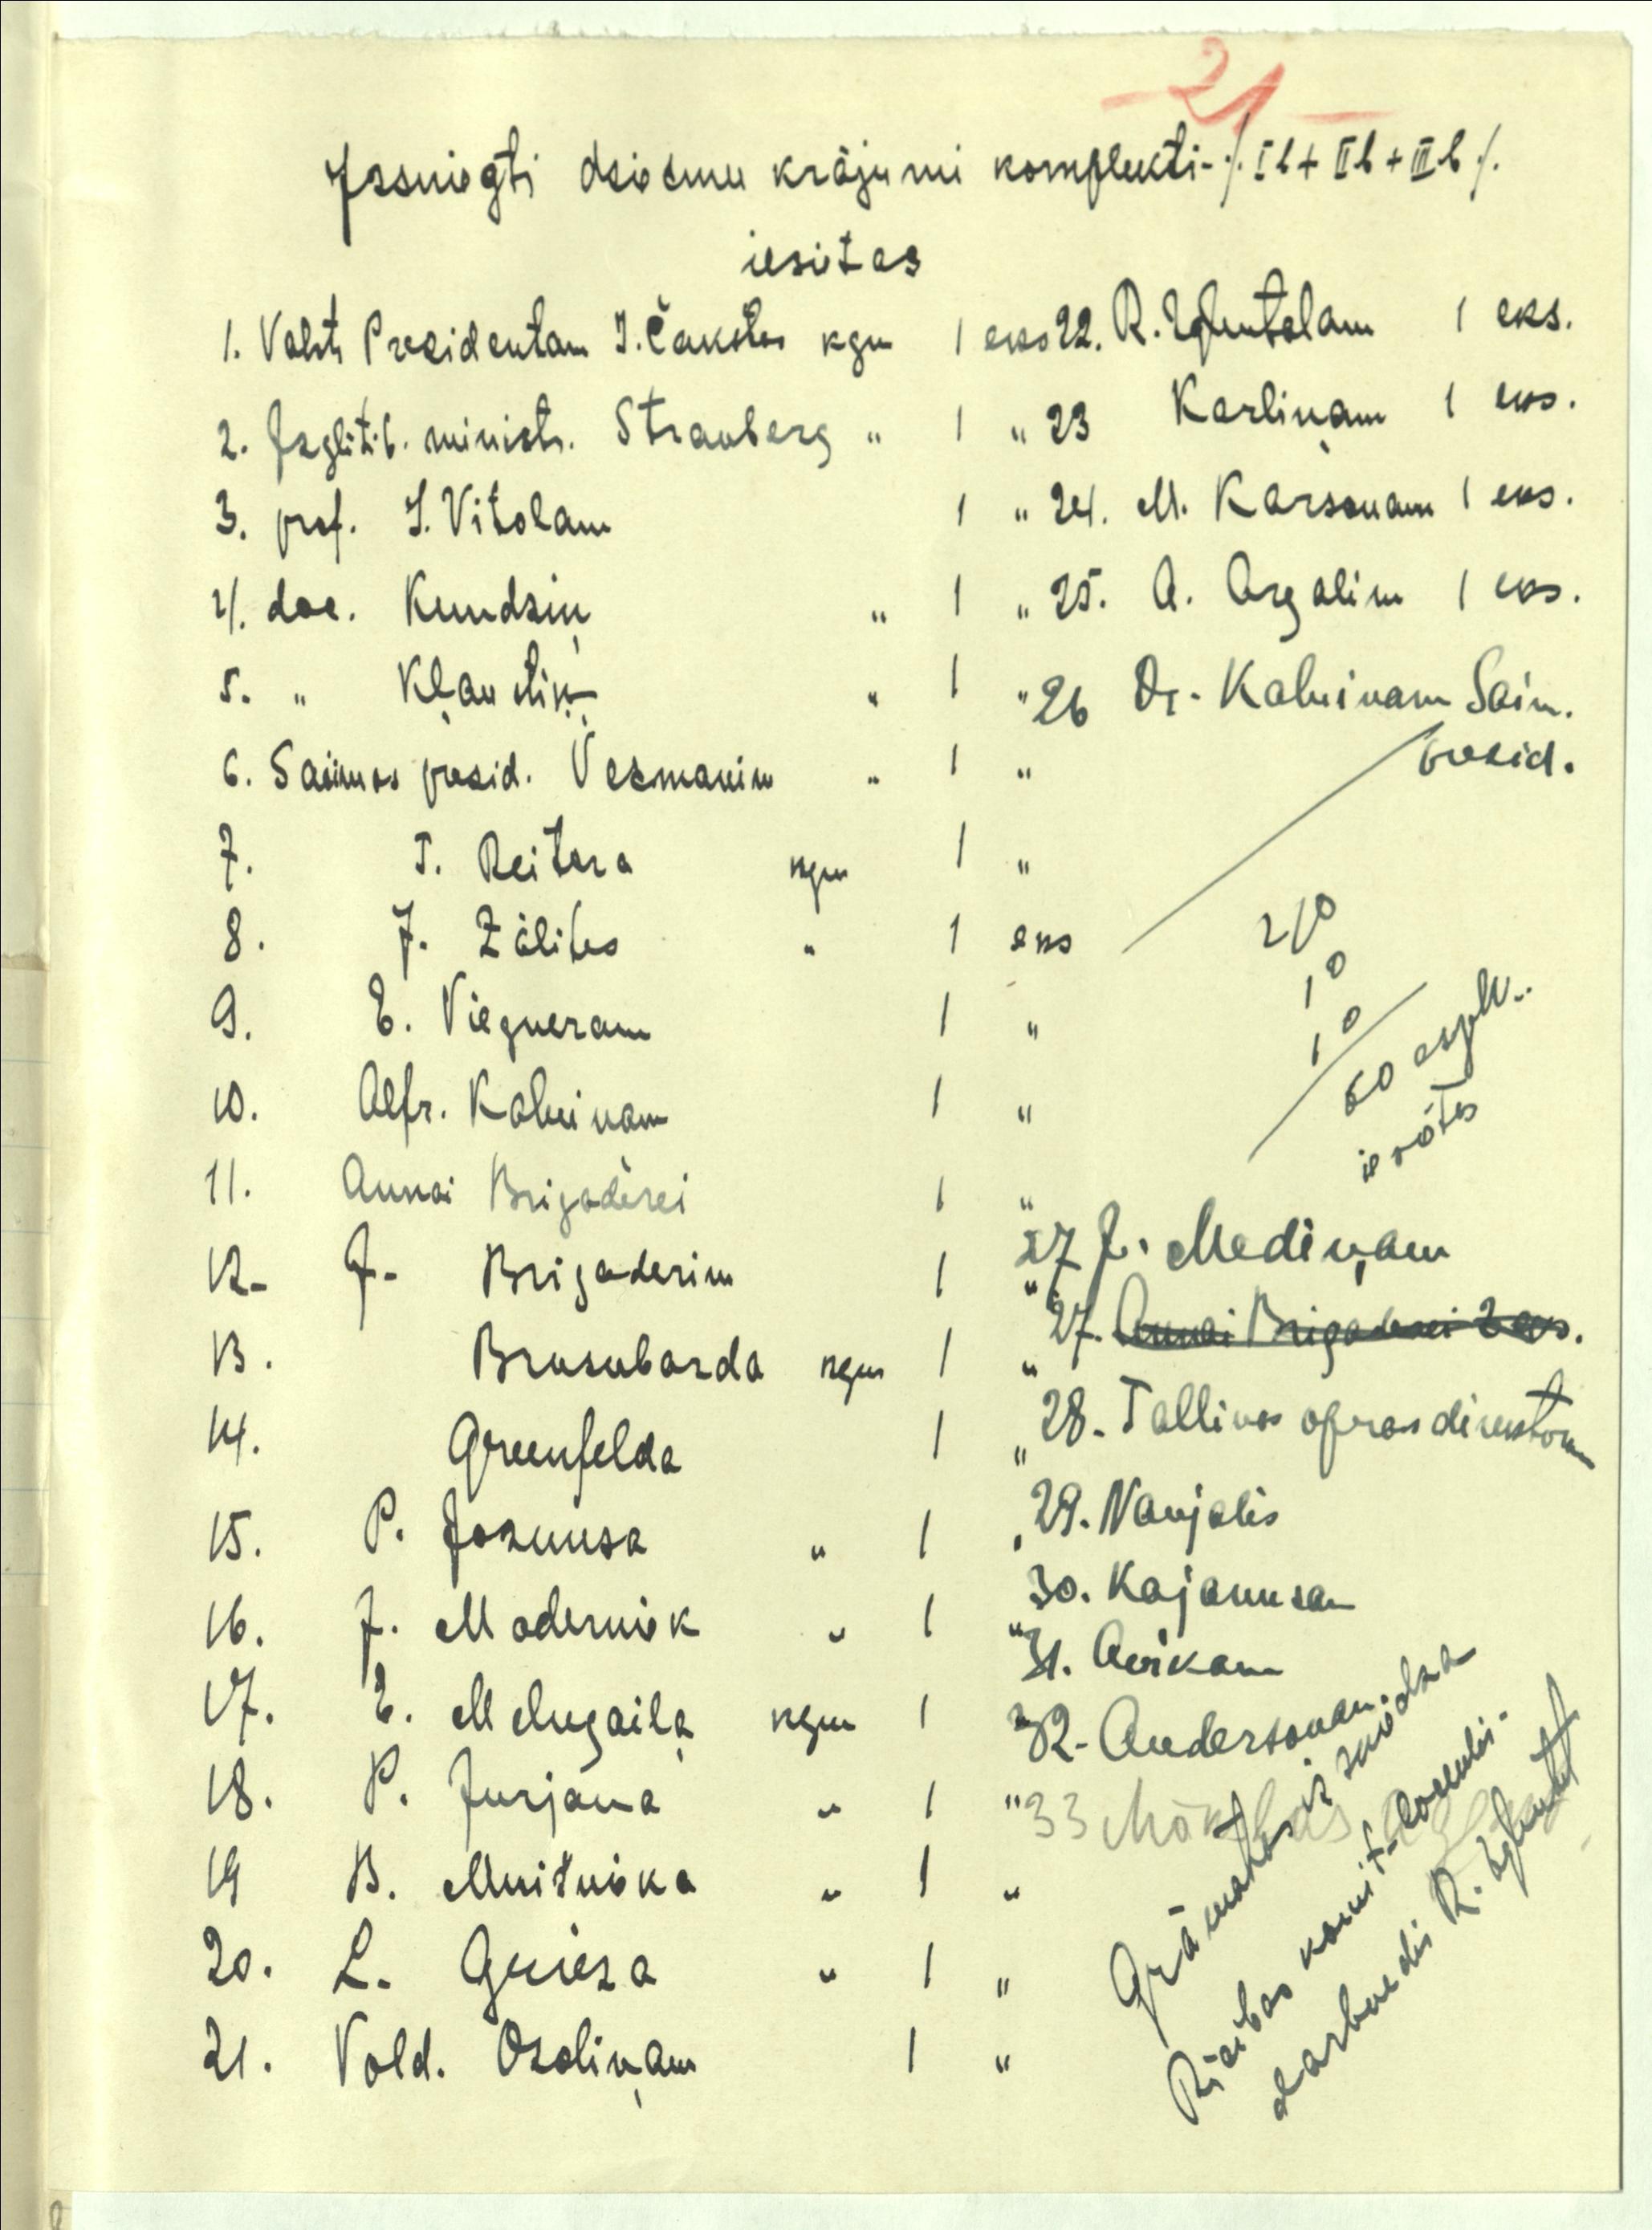 21
Izsniegti dziesmu krājumi komplekti ·/. I b + II b + III b ./.
iesietas
1. Valsts Prezidentam J. Čakstes kgm 1 eks
2. Izglītīb. ministr. Strauberg " 1 "
3. prof. J. Vītolam 1 "
4. doc. Kundziņ " 1 "
5. " Kļaustiņ " 1 "
6. Saeimas prezid. Vesmanim " 1 "
7. T. Reitera kgm 1 "
8. J. Zālītes " 1 eks
9. E. Vīgneram 1 "
10. Alfr. Kalniņam 1 "
11. Annai Brigaderei 1 "
12. J. Brigaderim 1 "
13. Brusubarda kgm 1 "
14. Greenfelda 1 "
15. P. Jozuusa " 1 "
16. J. Maderniek " 1 "
17. E. Melngaiļa kgm 1 "
18. P. Jurjāna " 1 "
19 B. Muitnieka " 1 "
20. L. Guieza " 1 "
21. Vold. Ozoliņam 1 "
22. R. Zgluntelam 1 eks.
23 Karliņam 1 eks.
24. M. Karsonam 1 eks.
25. A. Argalim 1 eks.
26 Dr. Kalniņam Saim.
prezid.
210
10
10
60
ierōtes
27 J. Mediņam
27. Annai Brigaderei 2 eks.
28. Tallinas operas direktoram
29. Naujalis
30. Kajanusam
31. Avikam
32. Andersonam
33
Grāmatas izsniedza
Rīcības komit. loceklis-
darbvedis R. Zglunt